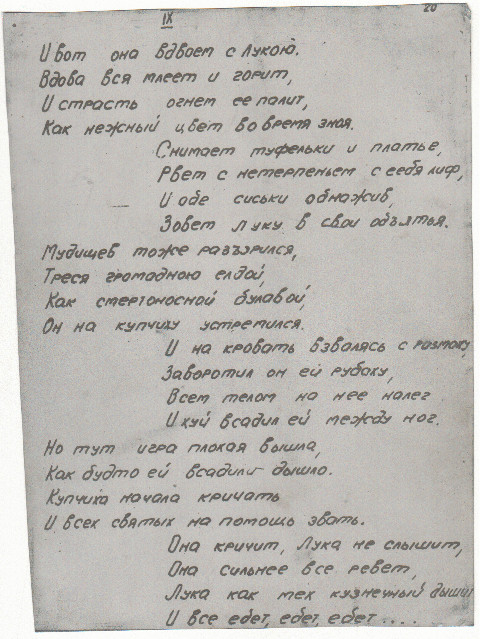 20
IX
И вот она вдвоем с Лукою.
Вдова вся млеет и горит,
И страсть огнем ее палит,
Как нежный цвет во время зноя.
Снимает туфельки и платье,
Рвет с нетерпеньем с себя лиф,
И обе сиськи обнажив,
Зовет Луку в свои объятья.
Мудищев тоже разъярился,
Тряся громадною елдой,
Как смертоносной булавой,
Он на купчиху устремился.
И на кровать взвалясь с размаху,
Заворотил он ей рубаху,
Всем телом на нее налег
И хуй всадил ей между ног.
Но тут игра плохая вышла,
Как будто ей всадили дышло.
Купчиха начала кричать
И всех святых на помощь звать.
Она кричит, Лука не слышит,
Она сильнее все ревет,
Лука как мех кузнечный дышит
И все ебет, ебет, ебет....